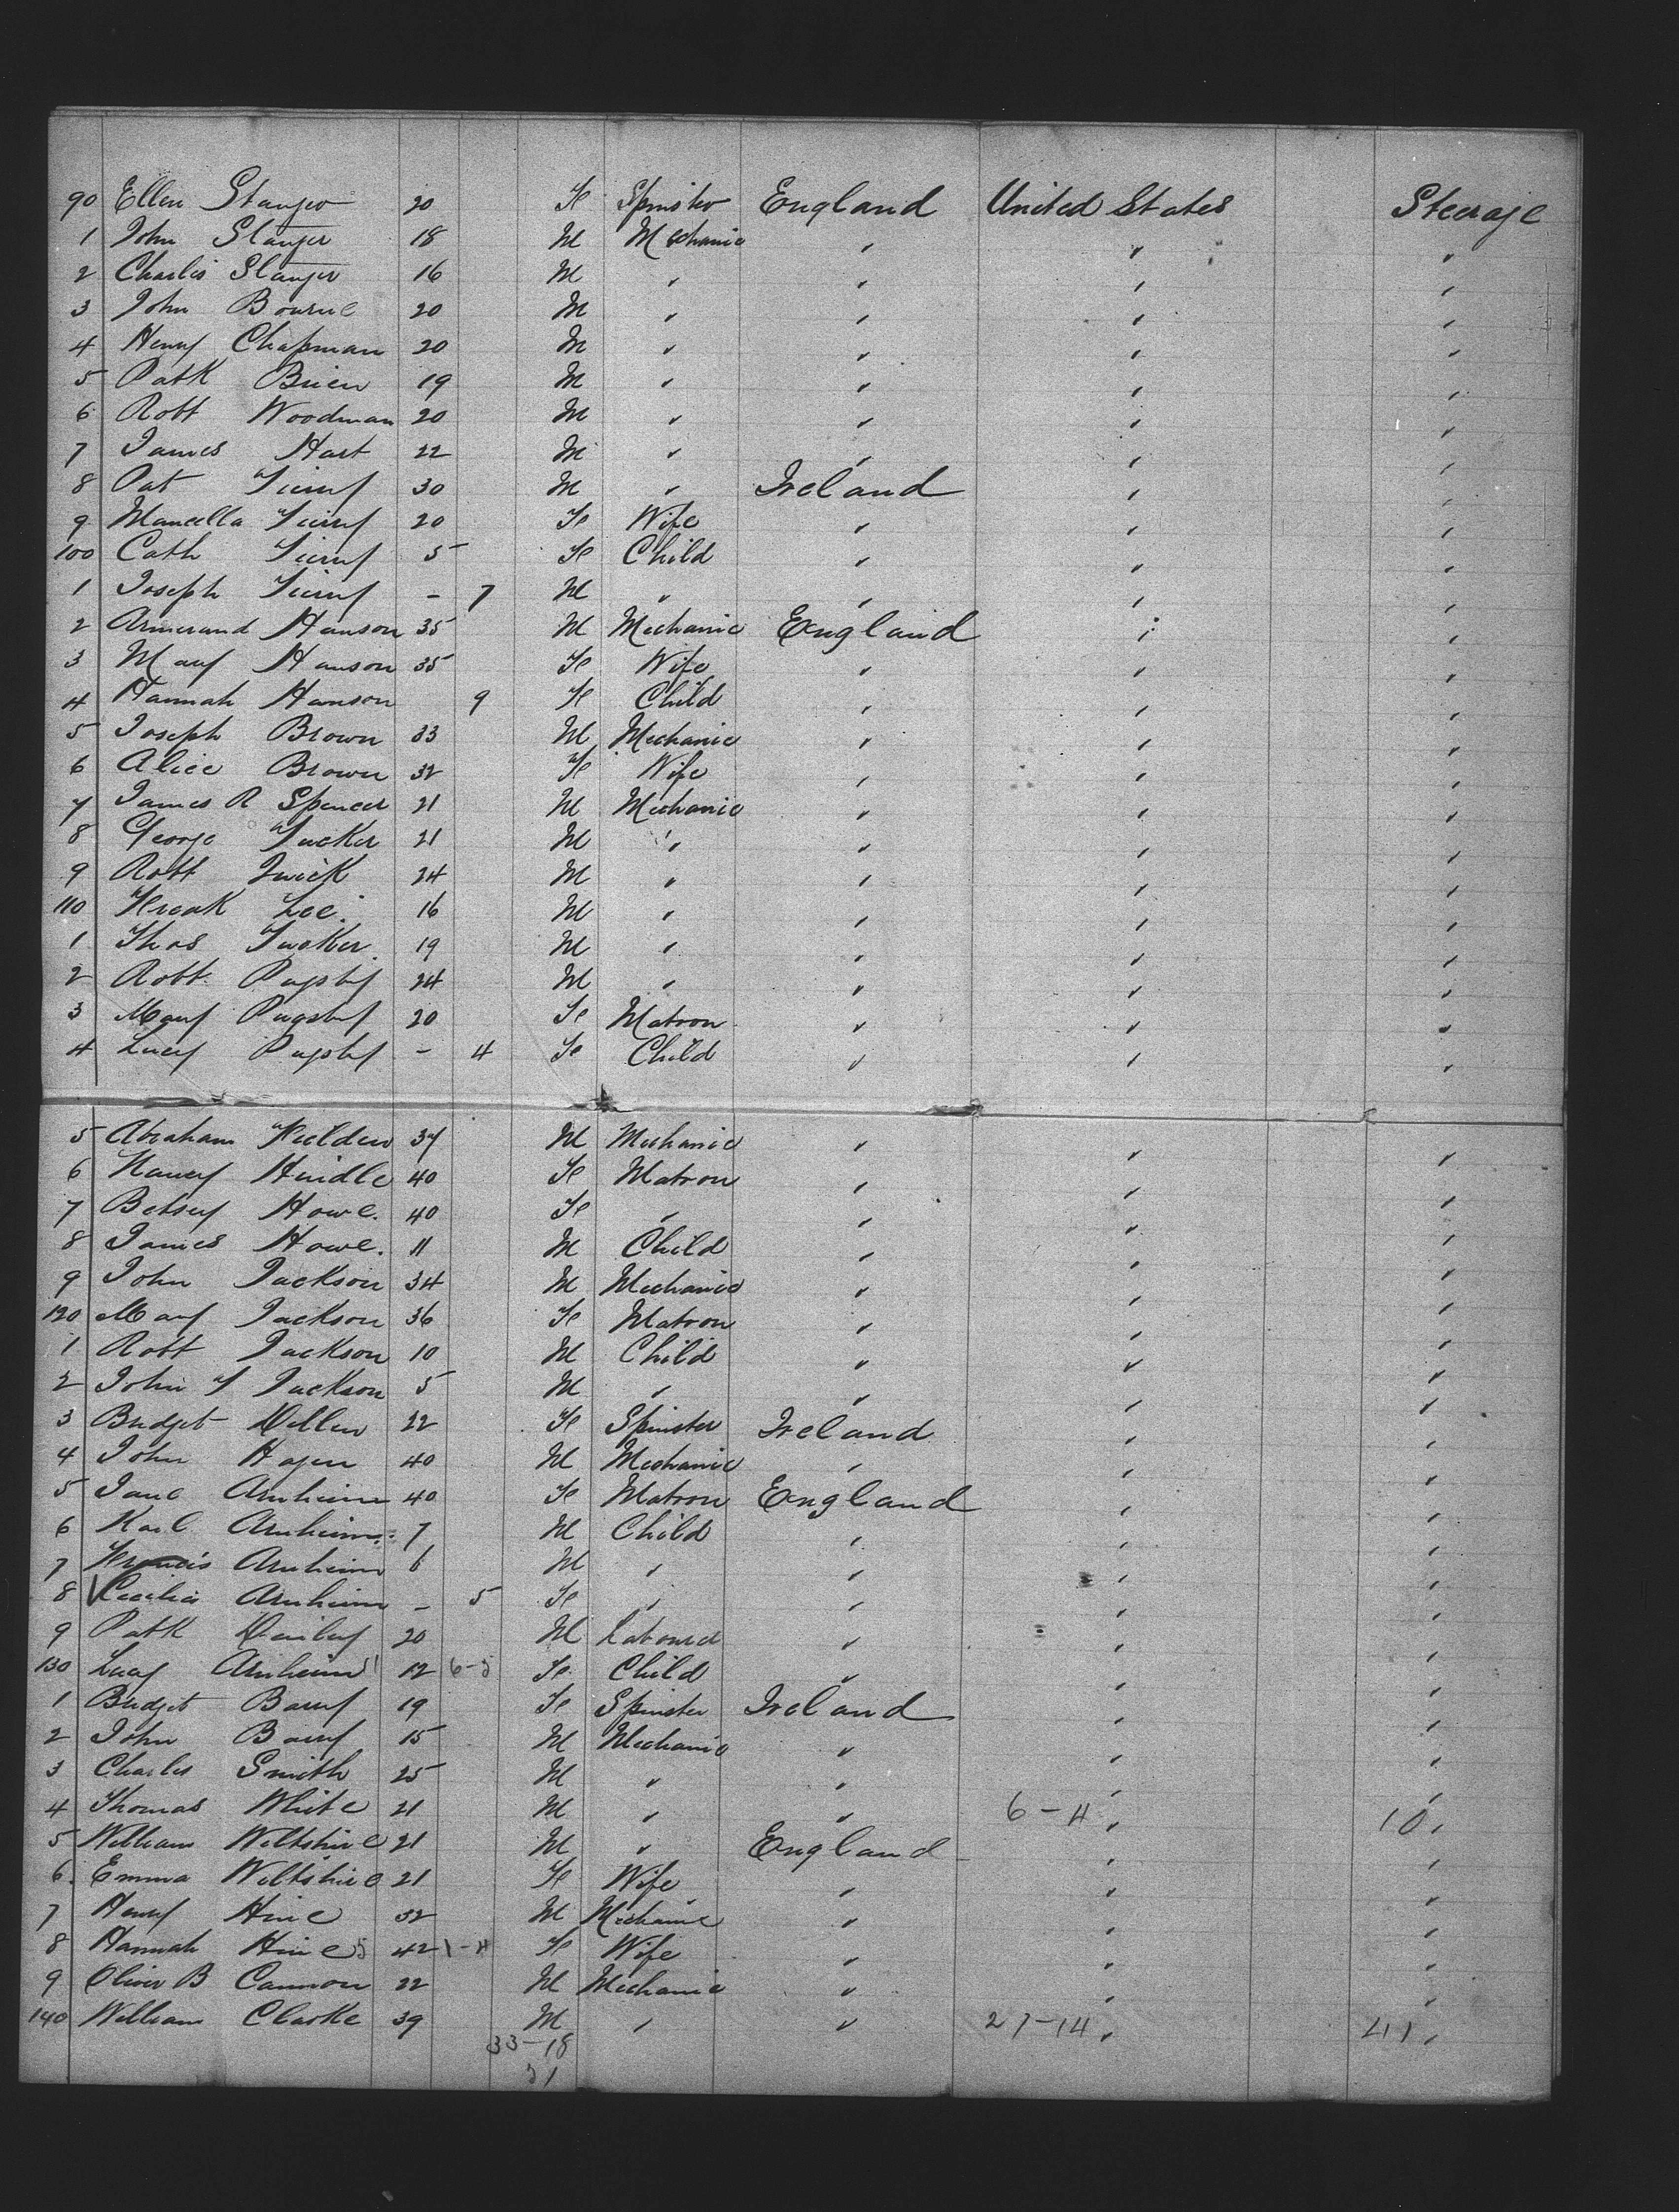 90 Ellen Stanger 20 Fe Spinster England United States Steerage
1 John Stanger 18 M Mechanic " " "
2 Charles Stanger 16 M " " " "
3 John Bourne 20 M " " " "
4 Henry Chapman 20 M " " " "
5 Patk Brien 19 M " " " "
6 Robt Woodman 20 M " " " "
7 James Hart 22 M " " " "
8 Pat 30 M " Ireland " "
9 Marcella 20 Fe Wife " " "
100 Cath 5 Fe Child " " "
1 Joseph - 7 M " " " "
2 Hanson 35 M Mechanic England " "
3 Mary Hanson 35 Fe Wife " " "
4 Hannah Hanson 9 Fe Child " " "
5 Joseph Brown 33 M Mechanic " " "
6 Alice Brown 32 Fe Wife " " "
7 James R Spencer 21 M Mechanic " " "
8 George Tucker 21 M " " " "
9 Robt 24 M " " " "
110 Frank Lee 16 M " " " "
1 Thos Tucker 19 M " " " "
2 Robt Pugsley 24 M " " " "
3 Mary Pugsley 20 Fe Matron " " "
4 Lucy Pugsley - 4 Fe Child " " "
5 Abraham Fielden 37 M Mechanic " " "
6 Nancy Hindle 40 Fe Matron " " "
7 Betsey Howe. 40 Fe " " " "
8 James Howe. 11 M Child " " "
9 John Jackson 34 M Mechanic " " "
120 Mary Jackson 36 Fe Matron " " "
1 Robt Jackson 10 M Child " " "
2 John T Jackson 5 M " " " "
3 Bridget 22 Fe Spinster Ireland " "
4 John Hagen 40 M Mechanic " " "
5 Jane Arnheim 40 Fe Matron England " "
6 Karl Arnheim 7 M Child " " "
7 Francis Arnheim 6 M " " " "
8 Cecilia Arnheim - 5 Fe " " " "
9 Patk 20 M Labourer " " "
130 Lucy Arnheim 12 6-5 Fe Child " " "
1 Bridget 19 Fe Spinster Ireland " "
2 John 15 M Mechanic " " "
3 Charles Smith 25 M " " " "
4 Thomas White 21 M " " 6-4 " 10 "
5 William Wiltshire 21 M " England " "
6. Emma Wiltshire 21 Fe Wife " " "
7 Henry Hine 32 M Mechanic " " "
8 Hannah Hine 42 1-4 Fe Wife " " "
9 Oliver B Cannon 22 M Mechanic " " "
140 William Clarke 39 M " " 27-14 " 41 "
33-18
51